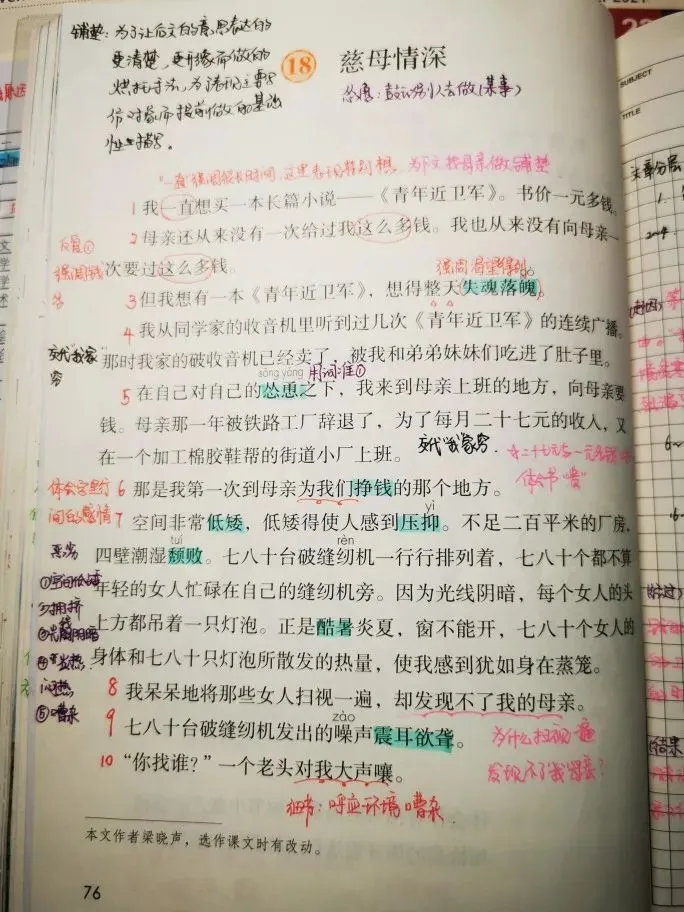 铺垫：为了让后文的意思表达的
更清楚，更形象而做的
烘托手法，为表现主要写
作对象而提前做的基础
性描写。
18 慈母情深
怂恿：鼓动别人去做(某事)
"一直"强调很长时间，这里表示特别想，为下文找母亲做铺垫
1 我一直想买一本长篇小说——《青年近卫军》。书价一元多钱。
2 母亲还从来没有一次给过我这么多钱。我也从来没有向母亲一
次要过这么多钱。
反复①
强调钱
多
强调渴望得到
3 但我想有一本《青年近卫军》，想得整天失魂落魄。
4 我从同学家的收音机里听到过几次《青年近卫军》的连续广播。
交代"我家"
穷
那时我家的破收音机已经卖了，被我和弟弟妹妹们吃进了肚子里。
sǒng yǒng
用词准①
5 在自己对自己的怂恿之下，我来到母亲上班的地方，向母亲要
钱。母亲那一年被铁路工厂辞退了，为了每月二十七元的收入，又
在一个加工棉胶鞋帮的街道小厂上班。
交代"我"家穷
体会字里行
间的感情
6 那是我第一次到母亲为我们挣钱的那个地方。
yì
7 空间非常低矮，低矮得使人感到压抑。不足二百平米的厂房，
tuí
rèn
四壁潮湿颓败。七八十台破缝纫机一行行排列着，七八十个都不算
年轻的女人忙碌在自己的缝纫机旁。因为光线阴暗，每个女人的头
上方都吊着一只灯泡。正是酷暑炎夏，窗不能开，七八十个女人的
身体和七八十只灯泡所散发的热量，使我感到犹如身在蒸笼。
恶劣
①空间低矮
②拥挤
③光线阴暗
闷热
⑤嘈杂
8 我呆呆地将那些女人扫视一遍，却发现不了我的母亲。
zào
9 七八十台破缝纫机发出的噪声震耳欲聋。
为什么扫视一遍
发现不了我母亲？
10 "你找谁？"一个老头对我大声嚷。
细节：呼应环境嘈杂
本文作者梁晓声，选作课文时有改动。
76
SUBJECT
TITLE
文章分层